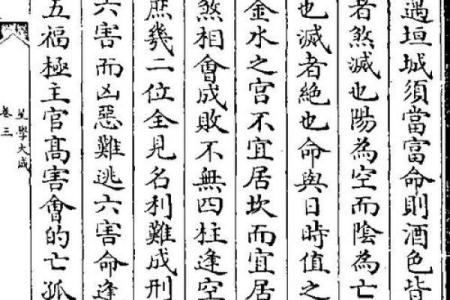 遇垣城須當富命則酒色皆
者煞滅也陽為空而陰為亡
也滅者絶也命與日時值之
金水之宫不宜居坎而宜居
煞相會成敗不無四柱逢空
庶幾二位全見名利難成刑
六害而凶惡難逃六害命逢
五福極主官髙害會的亡孤
星學大成
卷三